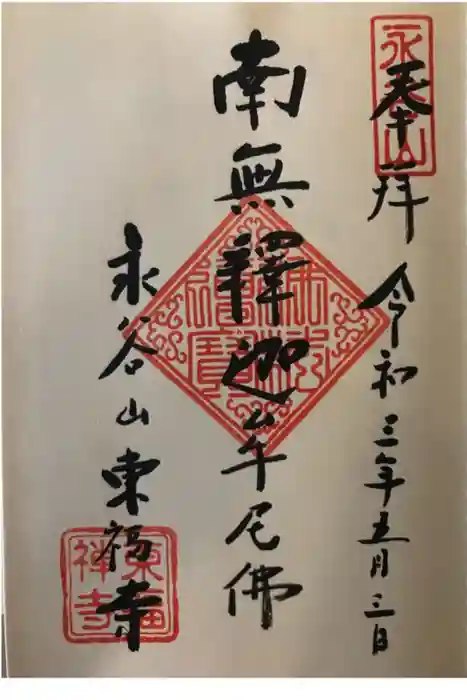 永谷山
奉拝 令和三年五月三日
南無釋迦牟尼佛
佛法僧寶
永谷山 東福寺
東福
禅寺